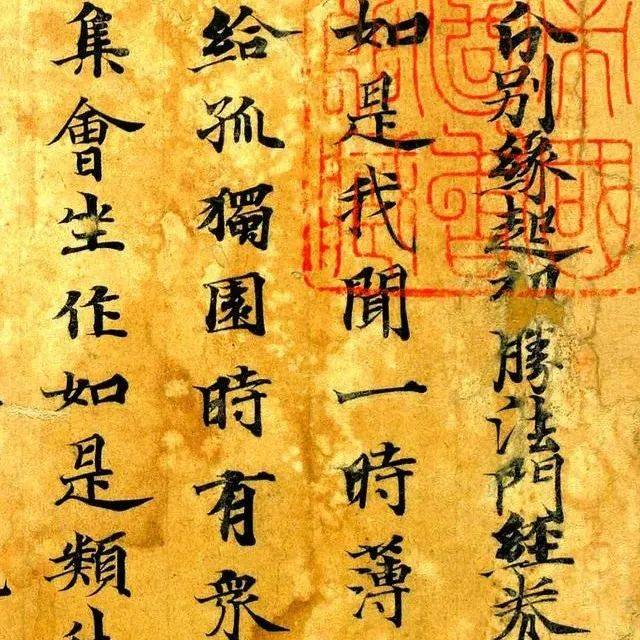 分別緣起初勝法門經卷
如是我聞一時薄
給孤獨園時有衆
集會坐作如是類